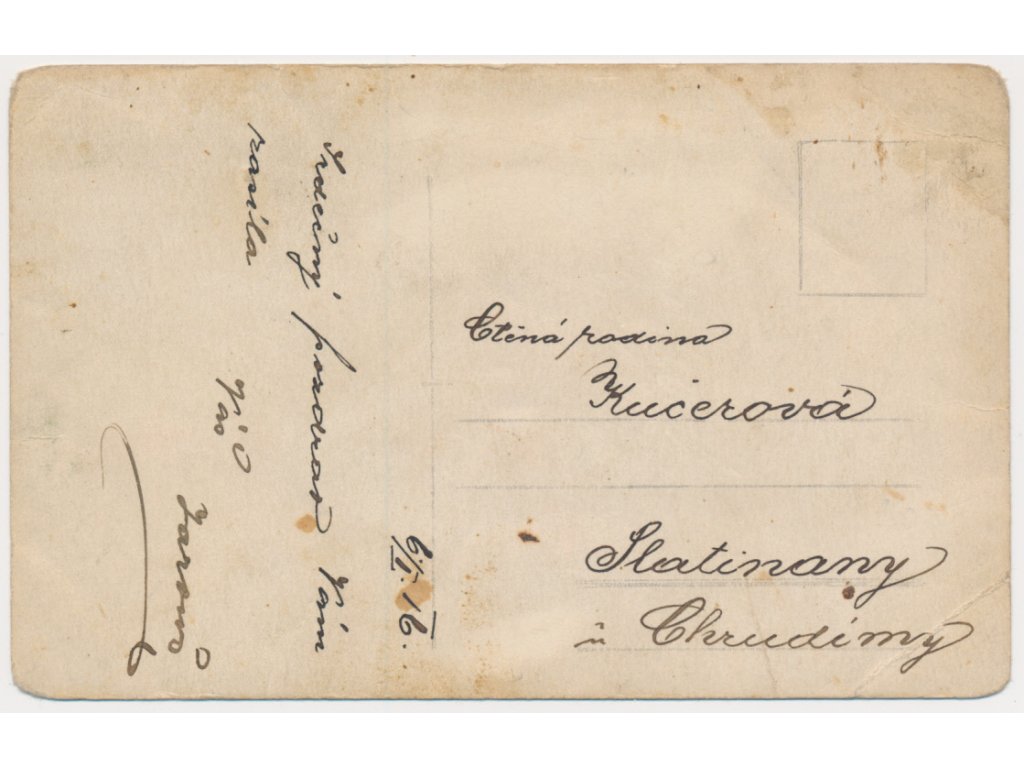 6/I. 16.
Srdečný pozdrav Vám
zasílá
Váš
Jaromír
Ctěná rodina
Kučerová
Slatinany
u Chrudimy